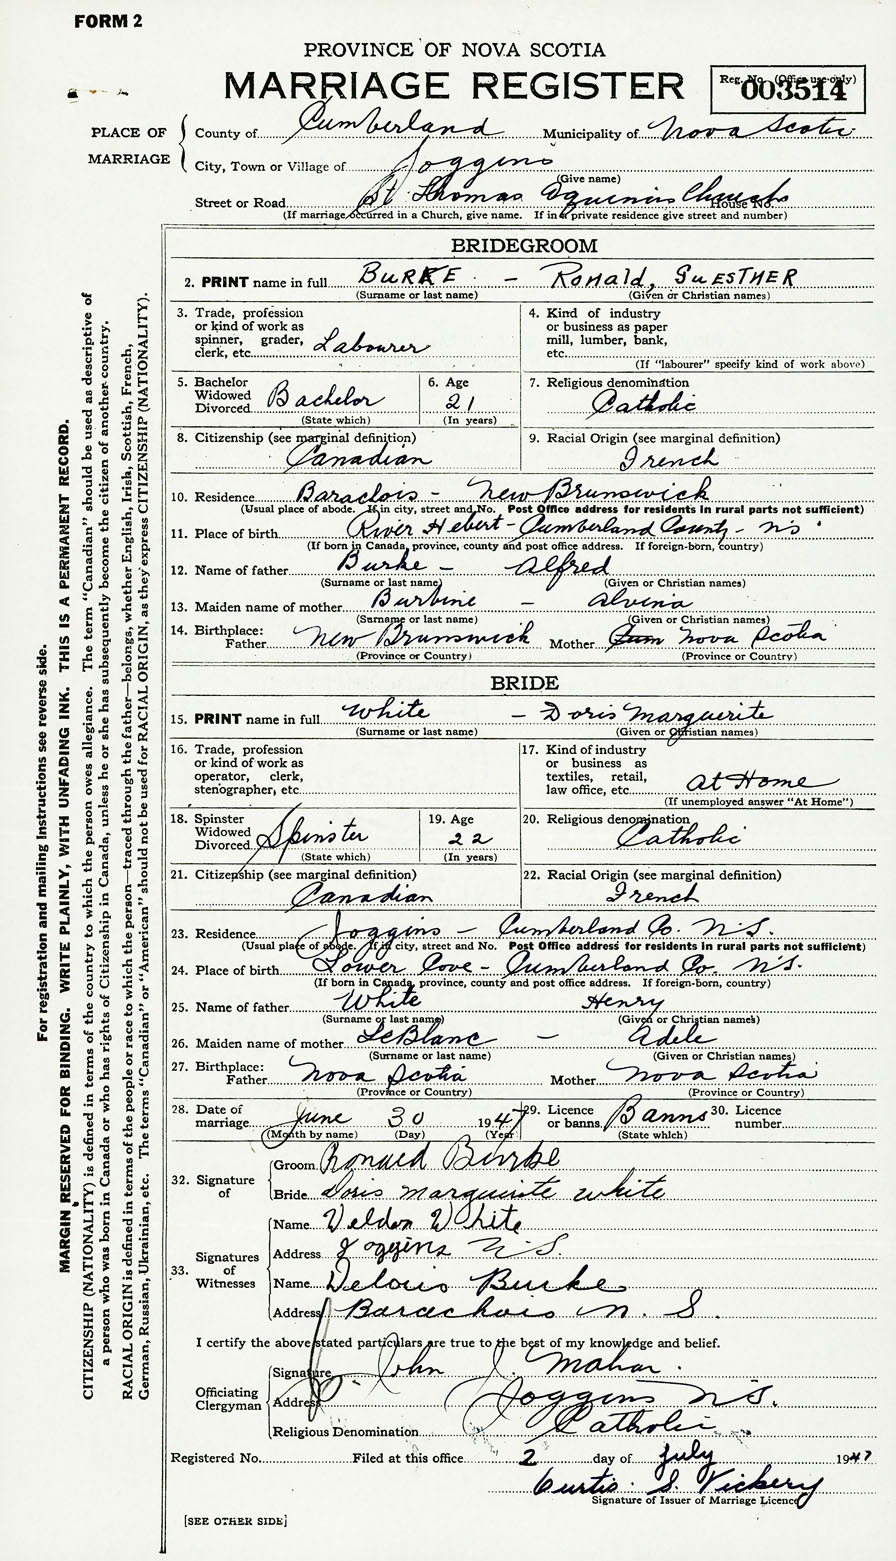 FORM 2
PROVINCE OF NOVA SCOTIA
MARRIAGE REGISTER
Reg. No. (Office use only)
003514
PLACE OF MARRIAGE
County of Cumberland Municipality of Nova Scotia
City, Town or Village of Joggins
(Give name)
Street or Road St Thomas Equinis Church House No.
(If marriage occurred in a Church, give name. If in a private residence give street and number)
BRIDEGROOM
2. PRINT name in full BURKE - RONALD, GUESTHER
(Surname or last name) (Given or Christian names)
3. Trade, profession or kind of work as spinner, grader, clerk, etc. Labourer
4. Kind of industry or business as paper mill, lumber, bank, etc.
(If "labourer" specify kind of work above)
5. Bachelor Widowed Divorced Bachelor
(State which)
6. Age 21
(In years)
7. Religious denomination Catholic
8. Citizenship (see marginal definition) Canadian
9. Racial Origin (see marginal definition) French
10. Residence Baraclois - New Brunswick
(Usual place of abode. If in city, street and No. Post Office address for residents in rural parts not sufficient)
11. Place of birth River Hebert - Cumberland County - N.S.
(If born in Canada, province, county and post office address. If foreign-born, country)
12. Name of father Burke - Alfred
(Surname or last name) (Given or Christian names)
13. Maiden name of mother Burbine - Alvina
(Surname or last name) (Given or Christian names)
14. Birthplace: Father New Brunswick Mother Nova Scotia
(Province or Country) (Province or Country)
BRIDE
15. PRINT name in full White - Doris Marguerite
(Surname or last name) (Given or Christian names)
16. Trade, profession or kind of work as operator, clerk, stenographer, etc.
17. Kind of industry or business as textiles, retail, law office, etc. At Home
(If unemployed answer "At Home")
18. Spinster Widowed Divorced Spinster
(State which)
19. Age 22
(In years)
20. Religious denomination Catholic
21. Citizenship (see marginal definition) Canadian
22. Racial Origin (see marginal definition) French
23. Residence Joggins - Cumberland Co. N.S.
(Usual place of abode. If in city, street and No. Post Office address for residents in rural parts not sufficient)
24. Place of birth Lower Cove - Cumberland Co. N.S.
(If born in Canada, province, county and post office address. If foreign-born, country)
25. Name of father White Henry
(Surname or last name) (Given or Christian names)
26. Maiden name of mother LeBlanc - Adele
(Surname or last name) (Given or Christian names)
27. Birthplace: Father Nova Scotia Mother Nova Scotia
(Province or Country) (Province or Country)
28. Date of marriage June 30 1947
(Month by name) (Day) (Year)
29. Licence or banns Banns
(State which)
30. Licence number
32. Signature of
Groom Ronald Burke
Bride Doris Marguirite White
33. Signatures of Witnesses
Name Veldon White
Address Joggins N.S.
Name Delouis Burke
Address Barachois N. S.
I certify the above stated particulars are true to the best of my knowledge and belief.
Officiating Clergyman
Signature John J. Mahar.
Address Joggins N.S.
Religious Denomination Catholic
Registered No. Filed at this office 2 day of July 1947
Curtis S. Vickery
Signature of Issuer of Marriage Licence
[SEE OTHER SIDE]
For registration and mailing instructions see reverse side.
MARGIN RESERVED FOR BINDING. WRITE PLAINLY, WITH UNFADING INK. THIS IS A PERMANENT RECORD.
CITIZENSHIP (NATIONALITY) is defined in terms of the country to which the person owes allegiance. The term "Canadian" should be used as descriptive of
a person who was born in Canada or who has rights of Citizenship in Canada, unless he or she has subsequently become the citizen of another country.
RACIAL ORIGIN is defined in terms of the people or race to which the person—traced through the father—belongs, whether English, Irish, Scottish, French,
German, Russian, Ukrainian, etc. The terms "Canadian" or "American" should not be used for RACIAL ORIGIN, as they express CITIZENSHIP (NATIONALITY).